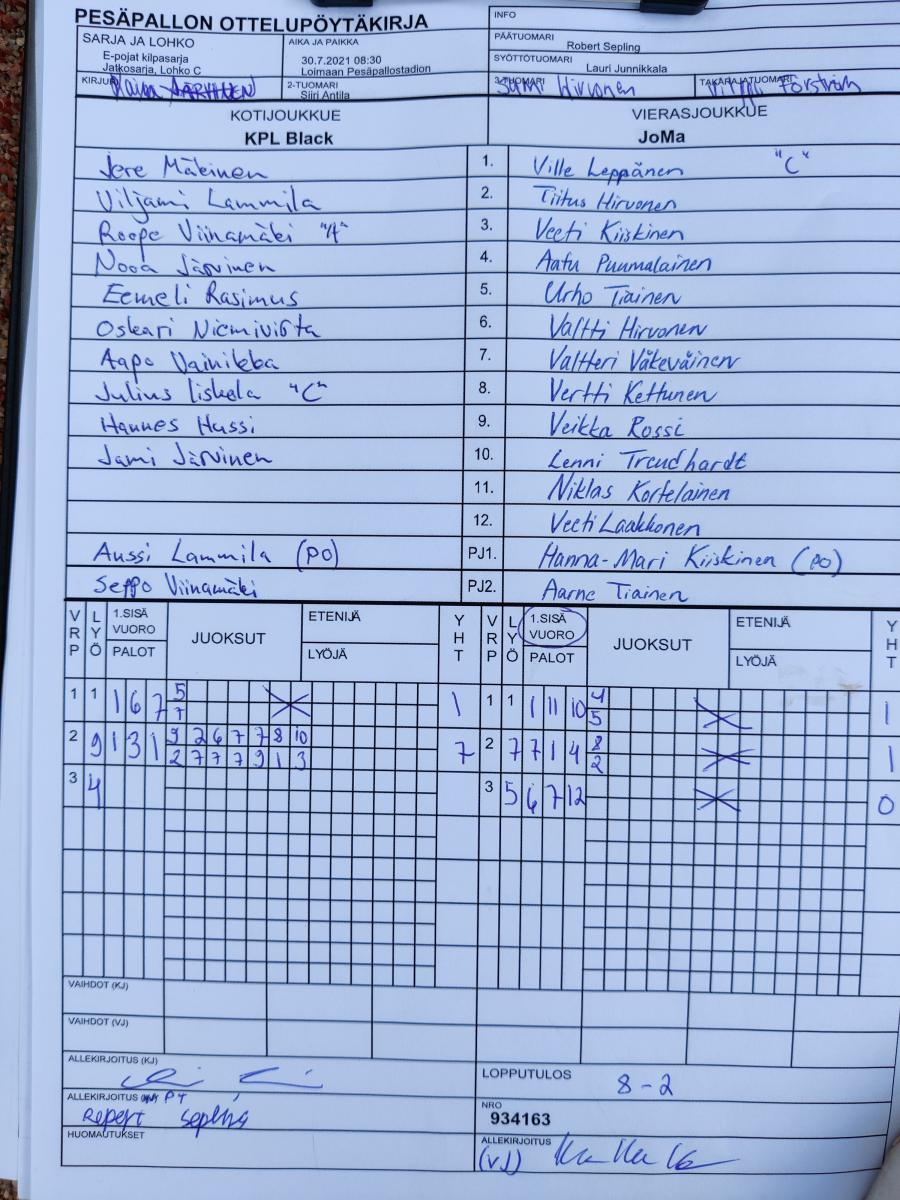 PESÄPALLON OTTELUPÖYTÄKIRJA
INFO
SARJA JA LOHKO
E-pojat kilpasarja
Jatkosarja, Lohko C
AIKA JA PAIKKA
30.7.2021 08:30
Loimaan Pesäpallostadion
PÄÄTUOMARI
Robert Sepling
SYÖTTÖTUOMARI
Lauri Junnikkala
KIRJURI
2-TUOMARI
Siiri Antila
3-TUOMARI
Sami Hirvonen
TAKARAJATUOMARI
Försström
KOTIJOUKKUE
KPL Black
VIERASJOUKKUE
JoMa
Jere Mäkinen 1. Ville Leppänen "C"
Viljami Lammila 2. Tiitus Hirvonen
Roope Viinamäki "A" 3. Veeti Kiiskinen
Nooa Järvinen 4. Aatu Puumalainen
Eemeli Rasimus 5. Urho Tiainen
Oskari Niemivirta 6. Valtti Hirvonen
Aapo Vainikka 7. Valtteri Väkeväinen
Julius Iiskola "C" 8. Vertti Kettunen
Hannes Hussi 9. Veikka Rossi
Jami Järvinen 10. Lenni Treudhardt
11. Niklas Kortelainen
12. Veeti Laakkonen
Anssi Lammila (PO) PJ1. Hanna-Mari Kiiskinen (PO)
Seppo Viinamäki PJ2. Aarne Tiainen
VRP LYÖ 1.SISÄ VUORO PALOT JUOKSUT ETENIJÄ LYÖJÄ YHT VRP LYÖ 1.SISÄ VUORO PALOT JUOKSUT ETENIJÄ LYÖJÄ YHT
1 1 1 6 7 5 1 1 1 1 11 10 4 1
7 5
2 9 1 3 1 9 2 6 7 7 8 10 7 2 7 7 1 4 8 1
2 7 7 7 9 1 3 2
3 4 3 5 6 7 12 0
VAIHDOT (KJ)
VAIHDOT (VJ)
ALLEKIRJOITUS (KJ)
LOPPUTULOS 8-2
ALLEKIRJOITUS PT
NRO
934163
HUOMAUTUKSET
ALLEKIRJOITUS
(VJ)